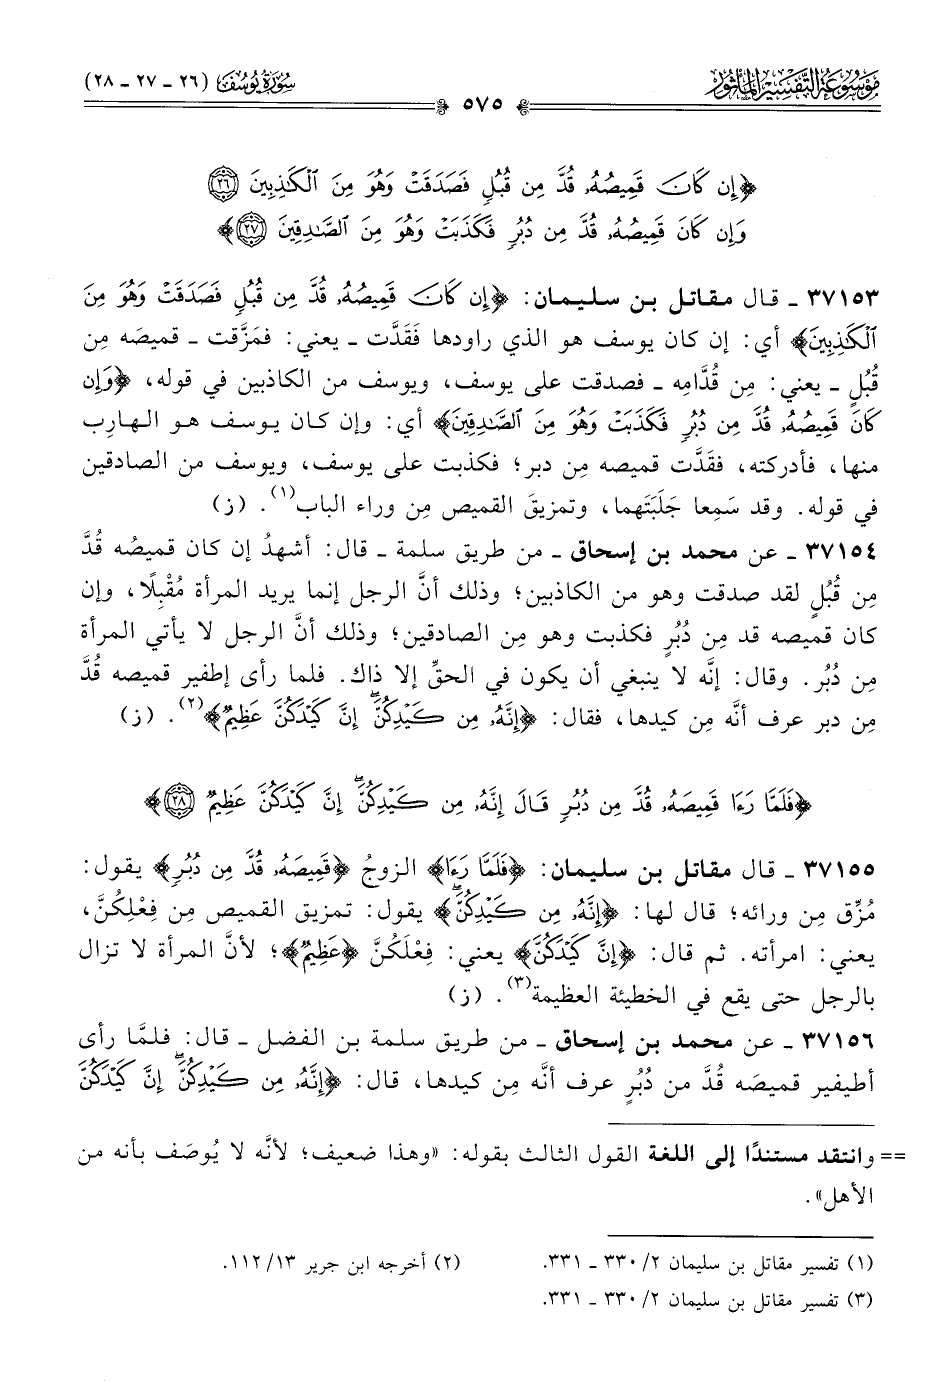 مَوْسُوعَةُ التَّفْسِيرِ المَأْثُور
سُورَةُ يُوسُفَ (٢٦ - ٢٧ - ٢٨)
٥٧٥
﴿إِن كَانَ قَمِيصُهُۥ قُدَّ مِن قُبُلٍ فَصَدَقَتْ وَهُوَ مِنَ ٱلْكَـٰذِبِينَ ٢٦
وَإِن كَانَ قَمِيصُهُۥ قُدَّ مِن دُبُرٍ فَكَذَبَتْ وَهُوَ مِنَ ٱلصَّـٰدِقِينَ ٢٧﴾
٣٧١٥٣ - قال مقاتل بن سليمان: ﴿إِن كَانَ قَمِيصُهُۥ قُدَّ مِن قُبُلٍ فَصَدَقَتْ وَهُوَ مِنَ
ٱلْكَـٰذِبِينَ﴾ أي: إن كان يوسف هو الذي راودها فَقَدَّت - يعني: فمَزَّقت - قميصَه مِن
قُبُلٍ - يعني: مِن قُدَّامِه - فصدقت على يوسف، ويوسف من الكاذبين في قوله، ﴿وَإِن
كَانَ قَمِيصُهُۥ قُدَّ مِن دُبُرٍ فَكَذَبَتْ وَهُوَ مِنَ ٱلصَّـٰدِقِينَ﴾ أي: وإن كان يوسف هو الهارِب
منها، فأدركته، فقَدَّت قميصه مِن دبر؛ فكذبت على يوسف، ويوسف من الصادقين
في قوله. وقد سَمِعا جَلَبَتَهما، وتمزيقَ القميص مِن وراء الباب(١). (ز)
٣٧١٥٤ - عن محمد بن إسحاق - من طريق سلمة - قال: أشهدُ إن كان قميصُه قُدَّ
مِن قُبُلٍ لقد صدقت وهو من الكاذبين؛ وذلك أنَّ الرجل إنما يريد المرأة مُقْبِلًا، وإن
كان قميصه قد مِن دُبُرٍ فكذبت وهو مِن الصادقين؛ وذلك أنَّ الرجل لا يأتي المرأة
مِن دُبُر. وقال: إنَّه لا ينبغي أن يكون في الحقِّ إلا ذاك. فلما رأى إطفير قميصه قُدَّ
مِن دبر عرف أنَّه مِن كيدها، فقال: ﴿إِنَّهُۥ مِن كَيْدِكُنَّ ۖ إِنَّ كَيْدَكُنَّ عَظِيمٌ﴾(٢). (ز)
﴿فَلَمَّا رَءَا قَمِيصَهُۥ قُدَّ مِن دُبُرٍ قَالَ إِنَّهُۥ مِن كَيْدِكُنَّ ۖ إِنَّ كَيْدَكُنَّ عَظِيمٌ ٢٨﴾
٣٧١٥٥ - قال مقاتل بن سليمان: ﴿فَلَمَّا رَءَا﴾ الزوجُ ﴿قَمِيصَهُۥ قُدَّ مِن دُبُرٍ﴾ يقول:
مُزِّق مِن ورائه؛ قال لها: ﴿إِنَّهُۥ مِن كَيْدِكُنَّ ۖ﴾ يقول: تمزيق القميص مِن فِعْلِكُنَّ،
يعني: امرأته. ثم قال: ﴿إِنَّ كَيْدَكُنَّ﴾ يعني: فِعْلَكُنَّ ﴿عَظِيمٌ﴾؛ لأنَّ المرأة لا تزال
بالرجل حتى يقع في الخطيئة العظيمة(٣). (ز)
٣٧١٥٦ - عن محمد بن إسحاق - من طريق سلمة بن الفضل - قال: فلمَّا رأى
أطيفير قميصَه قُدَّ من دُبُرٍ عرف أنَّه مِن كيدها، قال: ﴿إِنَّهُۥ مِن كَيْدِكُنَّ ۖ إِنَّ كَيْدَكُنَّ
== وانتقد مستندًا إلى اللغة القول الثالث بقوله: «وهذا ضعيف؛ لأنَّه لا يُوصَف بأنه من
الأهل».
(١) تفسير مقاتل بن سليمان ٢/ ٣٣٠ - ٣٣١.
(٢) أخرجه ابن جرير ١٣/ ١١٢.
(٣) تفسير مقاتل بن سليمان ٢/ ٣٣٠ - ٣٣١.